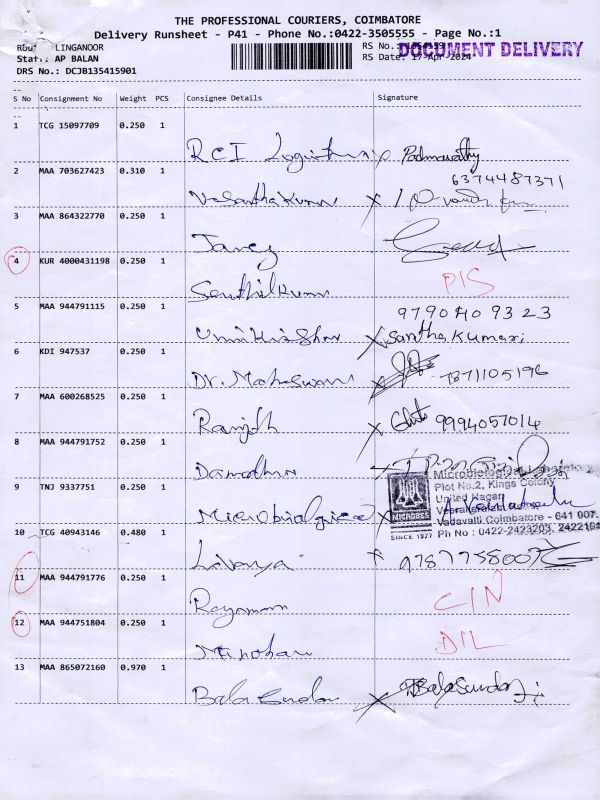 THE PROFESSIONAL COURIERS, COIMBATORE
Delivery Runsheet - P41 - Phone No.:0422-3505555 - Page No.:1
LINGANOOR
RS No.:
DOCUMENT DELIVERY
Staff: AP BALAN
RS Date: 17-Apr-2024
DRS No.: DCJB135415901
S No Consignment No Weight PCS Consignee Details Signature
1 TCG 15097709 0.250 1
RCI Logistics x Padmavathy
6374487371
2 MAA 703627423 0.310 1
Vasantha Kumar x
3 MAA 864322770 0.250 1
Jancy
4 KUR 4000431198 0.250 1
Senthil Kumar PIS
5 MAA 944791115 0.250 1
9790409323
x Santha Kumari
6 KDI 947537 0.250 1
Dr. Maheswari x 7871105196
7 MAA 600268525 0.250 1
Ranjith x 9994057014
8 MAA 944791752 0.250 1
Damodhar
9 TNJ 9337751 0.250 1
Microbiological x
Microbiological Laboratory
Plot No.2, Kings Colony
United Nagar
Vadavalli Coimbatore - 641 007.
Ph No : 0422-2423203,
MICROBES
SINCE 1977
10 TCG 40943146 0.480 1
Lavanya x
11 MAA 944791776 0.250 1
CIN
12 MAA 944751804 0.250 1
Manohar DIL
13 MAA 865072160 0.970 1
Bala Sundar x BalaSundar